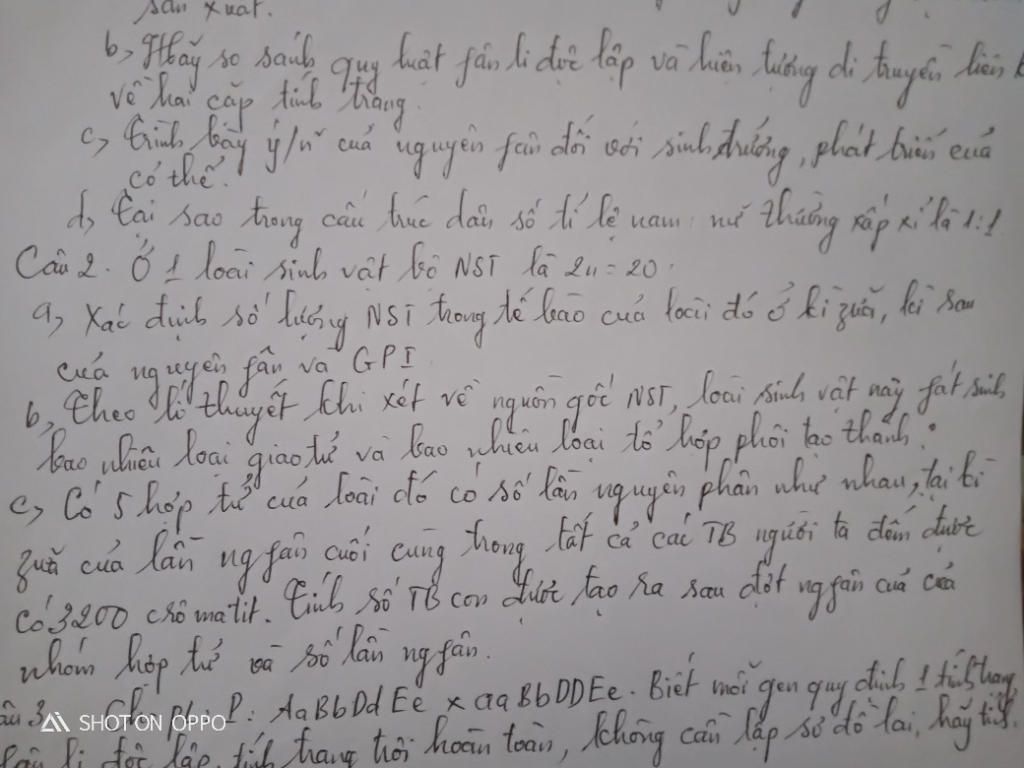 sản xuất.
b, Hãy so sánh quy luật fân li độc lập và hiện tượng di truyền liên
về hai cặp tính trạng.
c, Trình bày ý/n~ của nguyên fân đối với sinh trưởng, phát triển của
có thể.
d, Tại sao trong cấu trúc dân số tỉ lệ nam: nữ thường xấp xỉ là 1:1
Câu 2. Ở 1 loài sinh vật bộ NST là 2n = 20.
a, Xác định số lượng NST trong tế bào của loài đó ở kì zữa, kì sau
của nguyên fân và GPI
b, Theo lí thuyết khi xét về nguồn gốc NST, loài sinh vật này fát sinh
bao nhiêu loại giao tử và bao nhiêu loại tổ hợp phôi tạo thành.
c, Có 5 hợp tử của loài đó có số lần nguyên phân như nhau, tại kì
zữa của lần ng fân cuối cùng trong tất cả các TB người ta đếm được
có 3200 crômatit. Tính số TB con được tạo ra sau đợt ng fân của cả
nhóm hợp tử và số lần ng fân.
âu 3. phép P: AaBbDdEe x aaBbDDEe. Biết mỗi gen quy định 1 tính trạng,
fân li độc lập, tính trạng trội hoàn toàn, không cần lập sơ đồ lai, hãy tính.
SHOT ON OPPO